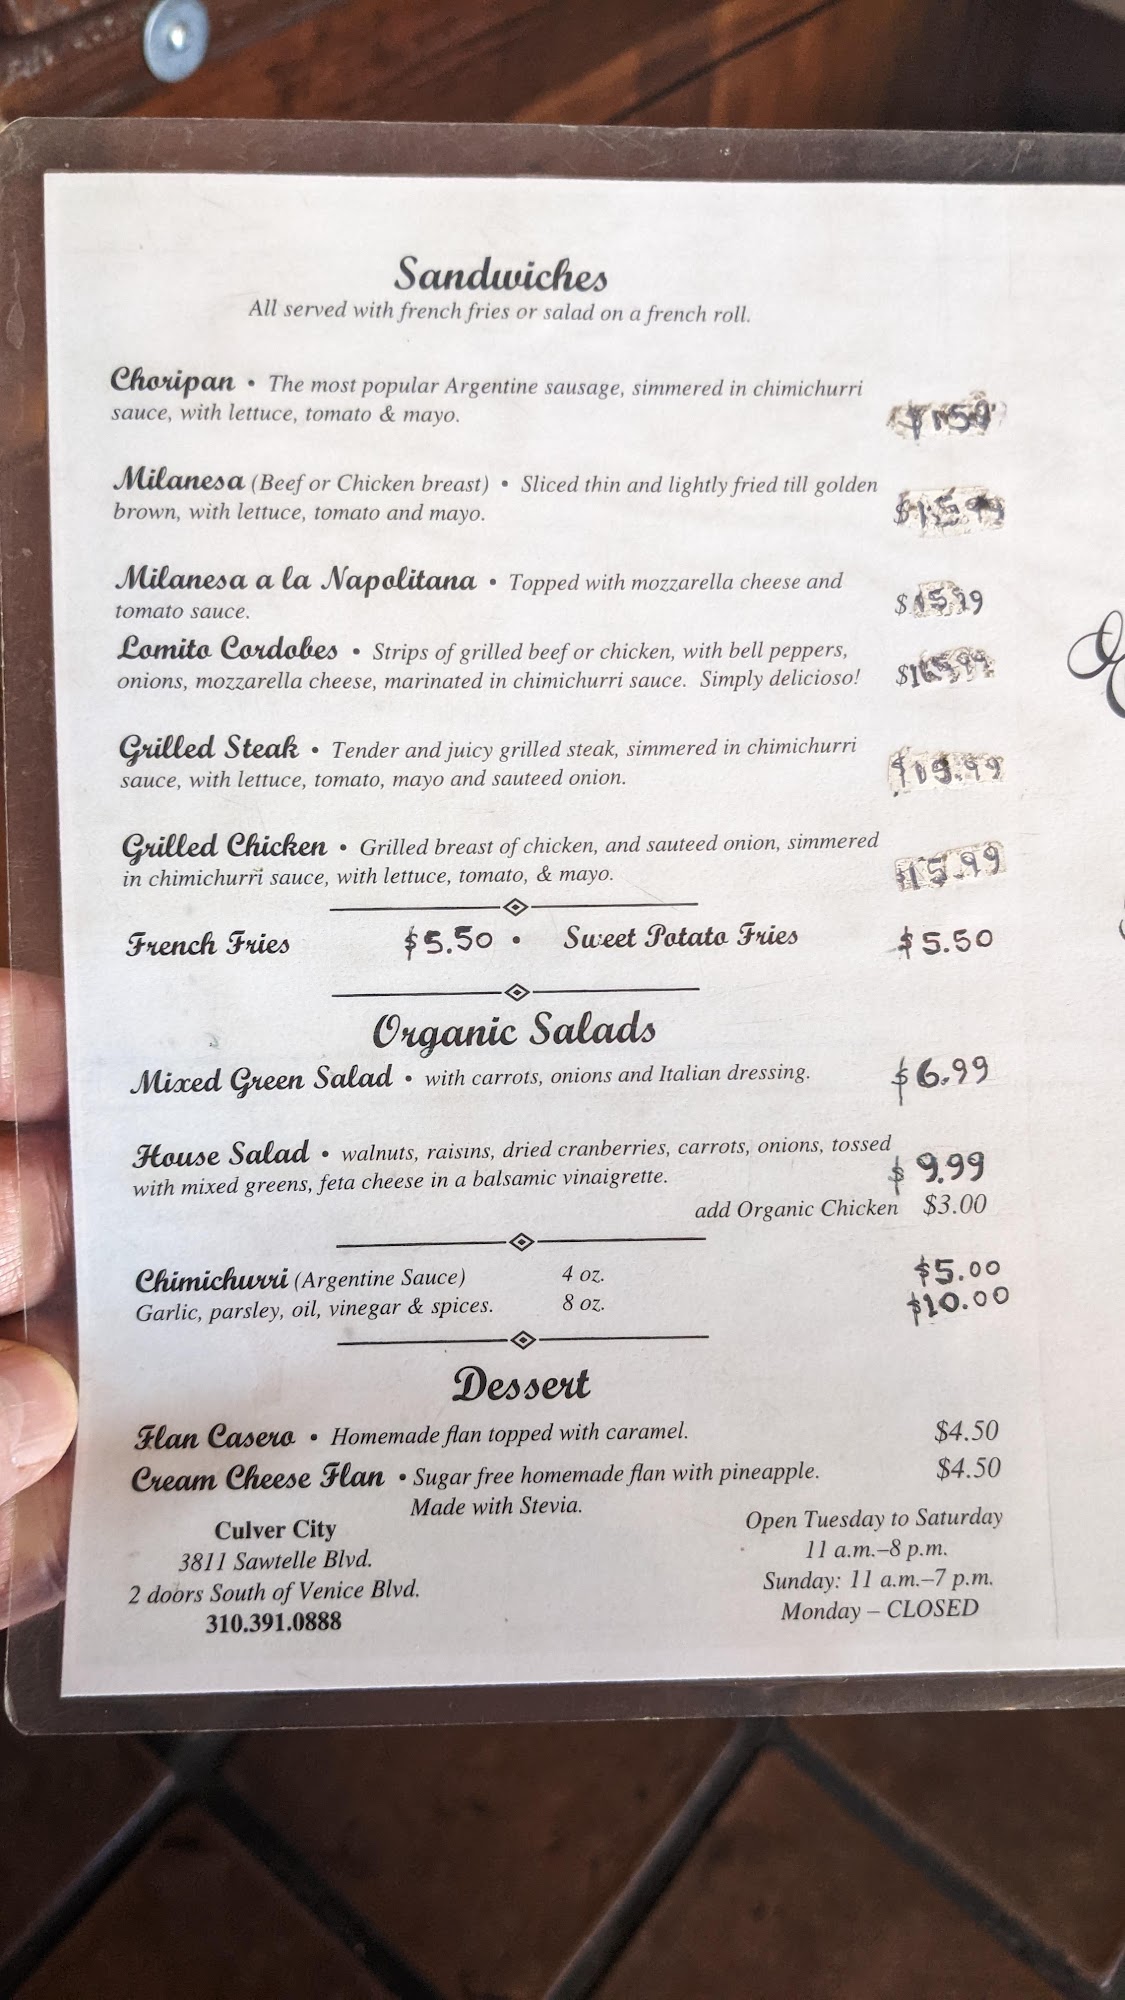 Sandwiches
All served with french fries or salad on a french roll.
Choripan • The most popular Argentine sausage, simmered in chimichurri
sauce, with lettuce, tomato & mayo.
Milanesa (Beef or Chicken breast) • Sliced thin and lightly fried till golden
brown, with lettuce, tomato and mayo.
$15.99
Milanesa a la Napolitana • Topped with mozzarella cheese and
tomato sauce.
$15.99
Lomito Cordobes • Strips of grilled beef or chicken, with bell peppers,
onions, mozzarella cheese, marinated in chimichurri sauce. Simply delicioso!
Grilled Steak • Tender and juicy grilled steak, simmered in chimichurri
sauce, with lettuce, tomato, mayo and sauteed onion.
Grilled Chicken • Grilled breast of chicken, and sauteed onion, simmered
in chimichurri sauce, with lettuce, tomato, & mayo.
$15.99
French Fries $5.50 • Sweet Potato Fries $5.50
Organic Salads
Mixed Green Salad • with carrots, onions and Italian dressing. $6.99
House Salad • walnuts, raisins, dried cranberries, carrots, onions, tossed
with mixed greens, feta cheese in a balsamic vinaigrette. $9.99
add Organic Chicken $3.00
Chimichurri (Argentine Sauce) 4 oz. $5.00
Garlic, parsley, oil, vinegar & spices. 8 oz. $10.00
Dessert
Flan Casero • Homemade flan topped with caramel. $4.50
Cream Cheese Flan • Sugar free homemade flan with pineapple. $4.50
Made with Stevia.
Culver City
3811 Sawtelle Blvd.
2 doors South of Venice Blvd.
310.391.0888
Open Tuesday to Saturday
11 a.m.–8 p.m.
Sunday: 11 a.m.–7 p.m.
Monday – CLOSED